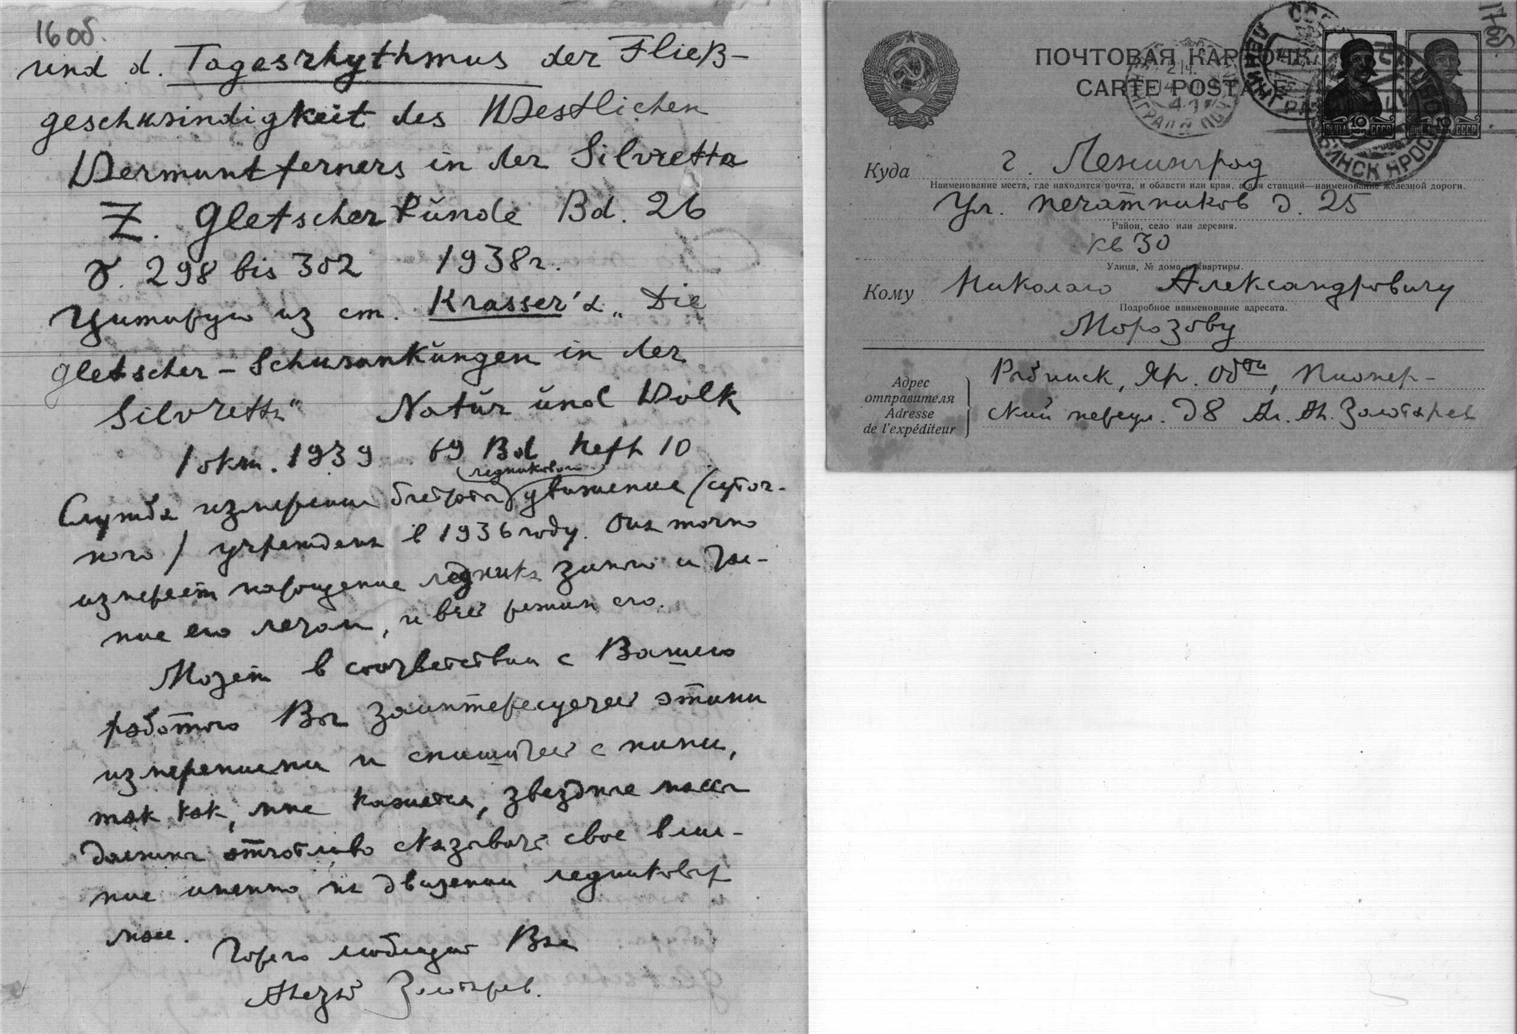 16об.
und d. Tagesrhythmus der Fließ-
geschwindigkeit des Westlichen
Vermuntferners in der Silvretta
Z. Gletscherkunde Bd. 26
S. 298 bis 302 1938г.
Цитирую из ст. Krasser'а „Die
Gletscher-Schwankungen in der
Silvretta“ Natur und Volk
1 окт. 1939 69 Bd Heft 10
ледникового
Служба измерения быстроты движения (суточ-
ного) учреждена в 1936 году. Она точно
измеряет нарощение ледника зимой и тая-
ние его летом, и весь режим его.
Может в соответствии с Вашею
работою Вы заинтересуетесь этими
измерениями и спишитесь с ними,
так как, мне кажется, звездные массы
должны отчетливо сказывать свое влия-
ние именно на движении ледниковых
масс.
Горячо любящий Вас
Алексей Золотарев.
17об.
ПОЧТОВАЯ КАРТОЧКА
CARTE POSTALE
Куда г. Ленинград
Наименование места, где находится почта, и области или края, а для станций—наименование железной дороги.
Ул. Печатников д. 25
Район, село или деревня.
кв 30
Улица, № дома и квартиры.
Кому Николаю Александровичу
Подробное наименование адресата.
Морозову
Адрес отправителя
Adresse de l'expéditeur
Рыбинск, Яр. обл., Пионер-
ский переул. д 8 Ал. Ал. Золотарев